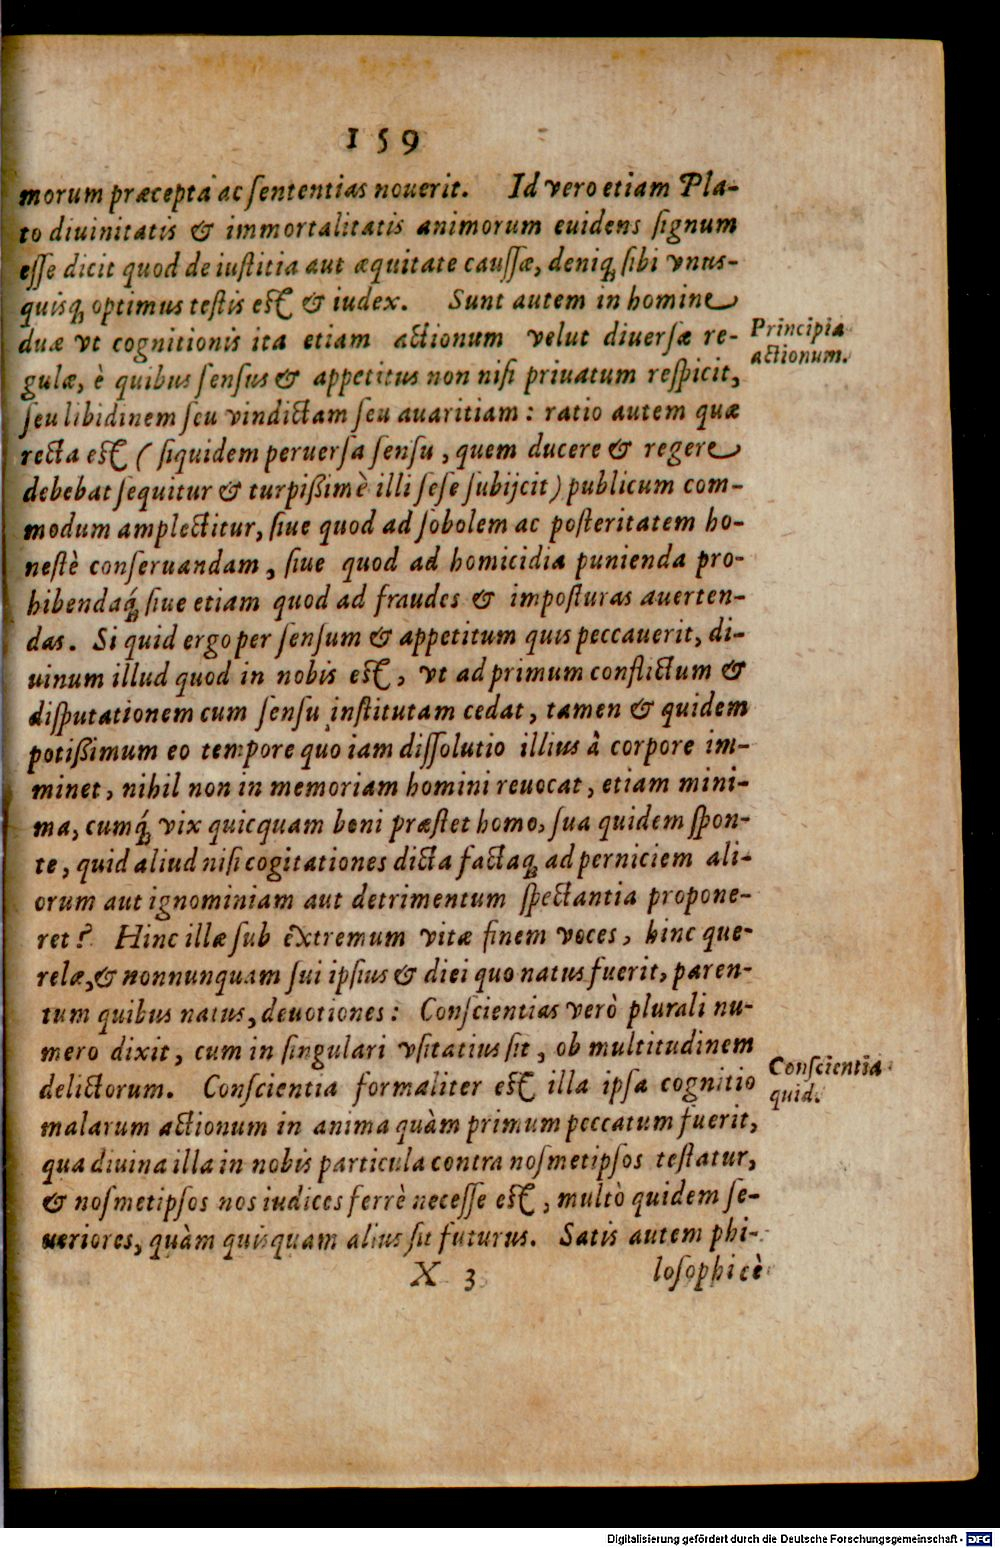 159
morum præcepta ac ſententias nouerit. Id vero etiam Pla-
to diuinitatis & immortalitatis animorum euidens ſignum
eſſe dicit quod de iuſtitia aut æquitate cauſſæ, deniq; ſibi vnus-
quisq; optimus teſtis eſt & iudex. Sunt autem in homine
duæ vt cognitionis ita etiam actionum velut diuerſæ re-
Principia
actionum.
gulæ, è quibus ſenſus & appetitus non niſi priuatum reſpicit,
ſeu libidinem ſeu vindictam ſeu auaritiam: ratio autem quæ
recta eſt (ſiquidem peruerſa ſenſu, quem ducere & regere
debebat ſequitur & turpißimè illi ſeſe ſubijcit) publicum com-
modum amplectitur, ſiue quod ad ſobolem ac poſteritatem ho-
neſtè conſeruandam, ſiue quod ad homicidia punienda pro-
hibendaq́; ſiue etiam quod ad fraudes & impoſturas auerten-
das. Si quid ergo per ſenſum & appetitum quis peccauerit, di-
uinum illud quod in nobis eſt, vt ad primum conflictum &
diſputationem cum ſenſu inſtitutam cedat, tamen & quidem
potißimum eo tempore quo iam diſſolutio illius à corpore im-
minet, nihil non in memoriam homini reuocat, etiam mini-
ma, cumq́; vix quicquam boni præſtet homo, ſua quidem ſpon-
te, quid aliud niſi cogitationes dicta factaq; ad perniciem ali-
orum aut ignominiam aut detrimentum ſpectantia propone-
ret? Hinc illæ ſub extremum vitæ finem voces, hinc que-
relæ, & nonnunquam ſui ipſius & diei quo natus fuerit, paren-
tum quibus natus, deuotiones: Conſcientias verò plurali nu-
mero dixit, cum in ſingulari vſitatius ſit, ob multitudinem
delictorum. Conſcientia formaliter eſt illa ipſa cognitio
Conſcientia
quid.
malarum actionum in anima quàm primum peccatum fuerit,
qua diuina illa in nobis particula contra noſmetipſos teſtatur,
& noſmetipſos nos iudices ferrè neceſſe eſt, multò quidem ſe-
ueriores, quàm quisquam alius ſit futurus. Satis autem phi-
X 3 loſophicè
Digitalisierung gefördert durch die Deutsche Forschungsgemeinschaft - DFG